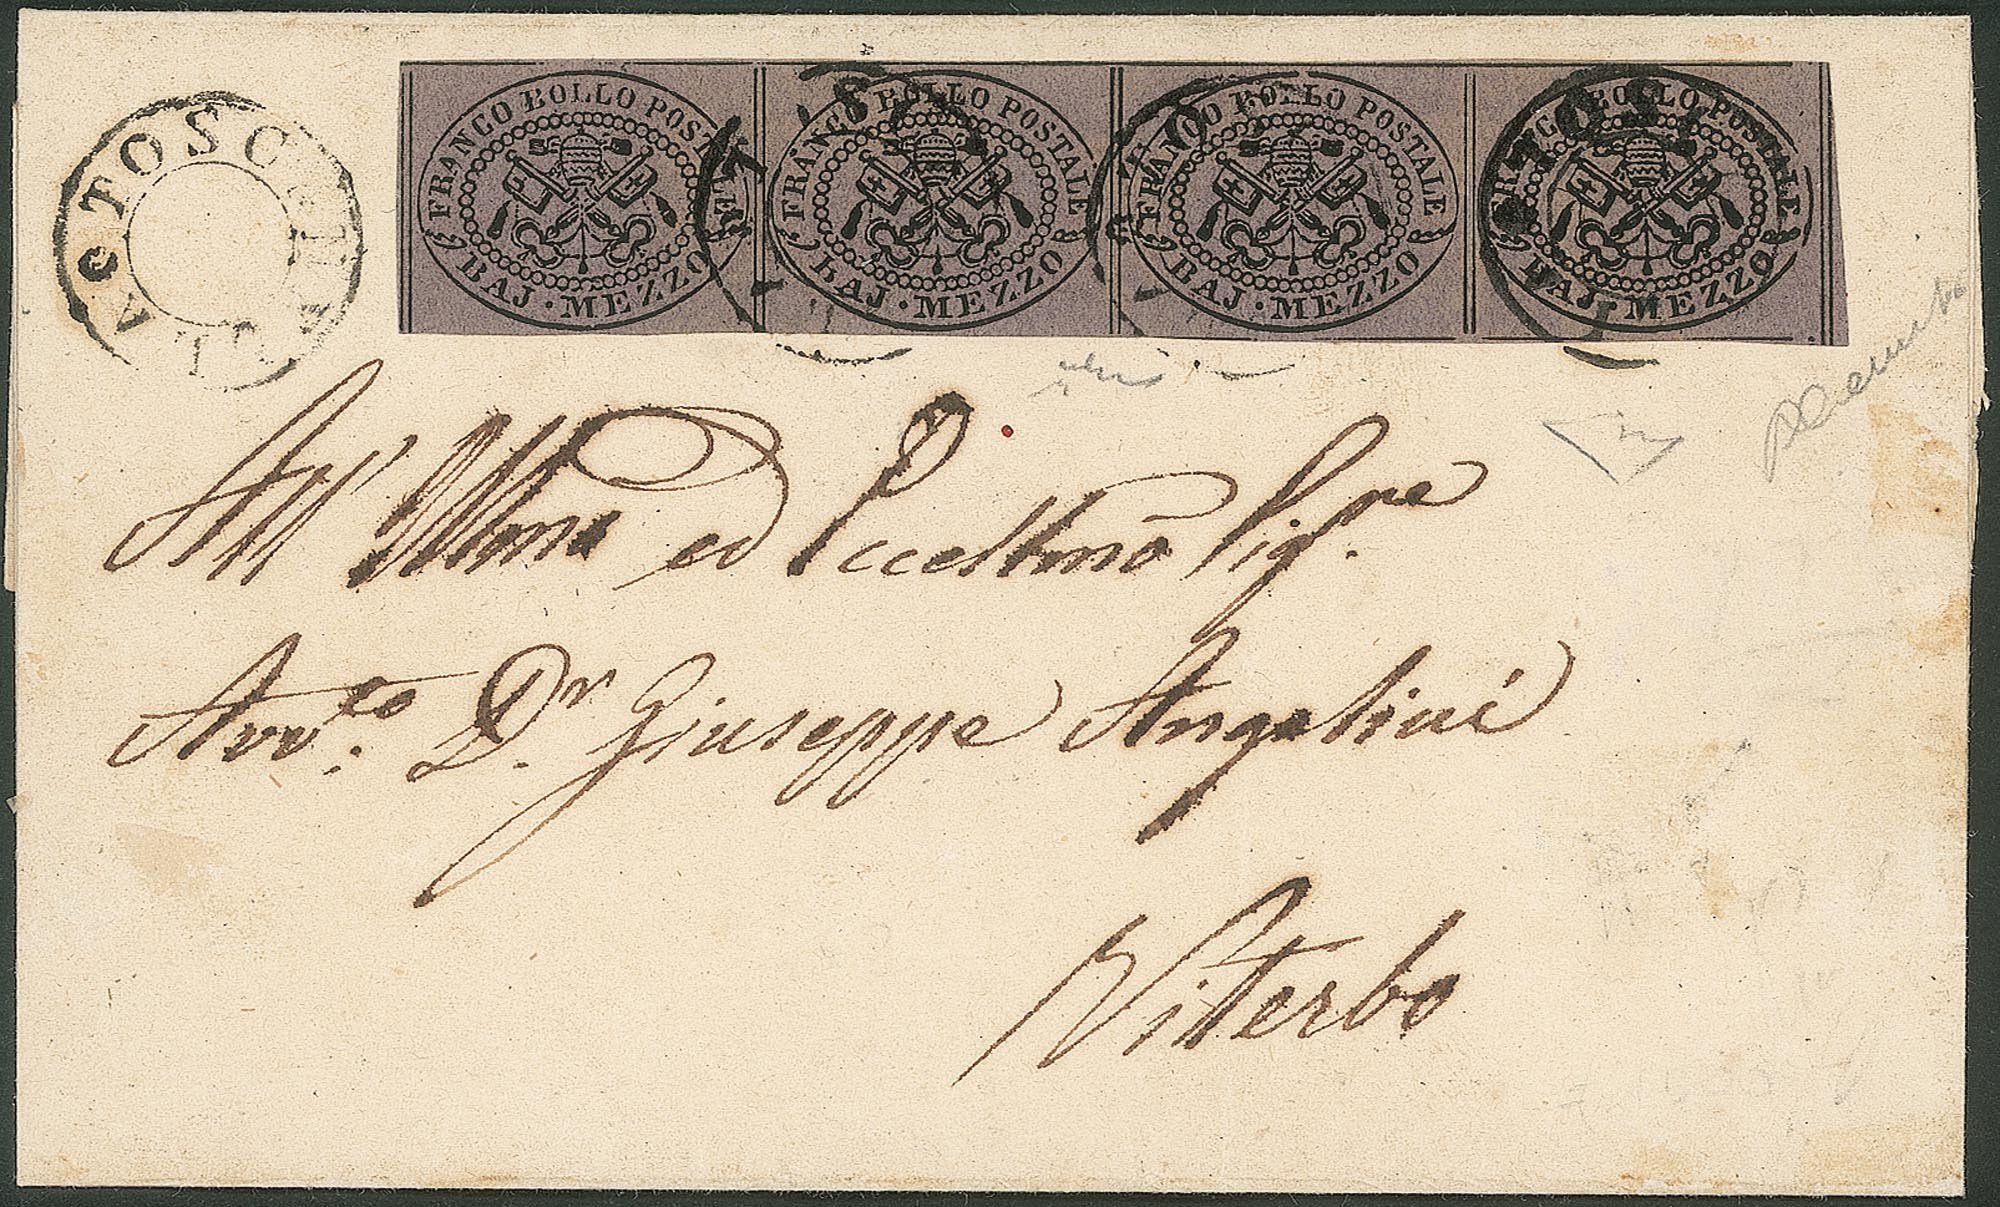 TOSCANELLA
FRANCO BOLLO POSTALE
BAJ · MEZZO
FRANCO BOLLO POSTALE
BAJ · MEZZO
FRANCO BOLLO POSTALE
BAJ · MEZZO
FRANCO BOLLO POSTALE
BAJ · MEZZO
All' Illmo ed Eccellmo Sigre
Avvto. Dr. Giuseppe Angelini
Viterbo